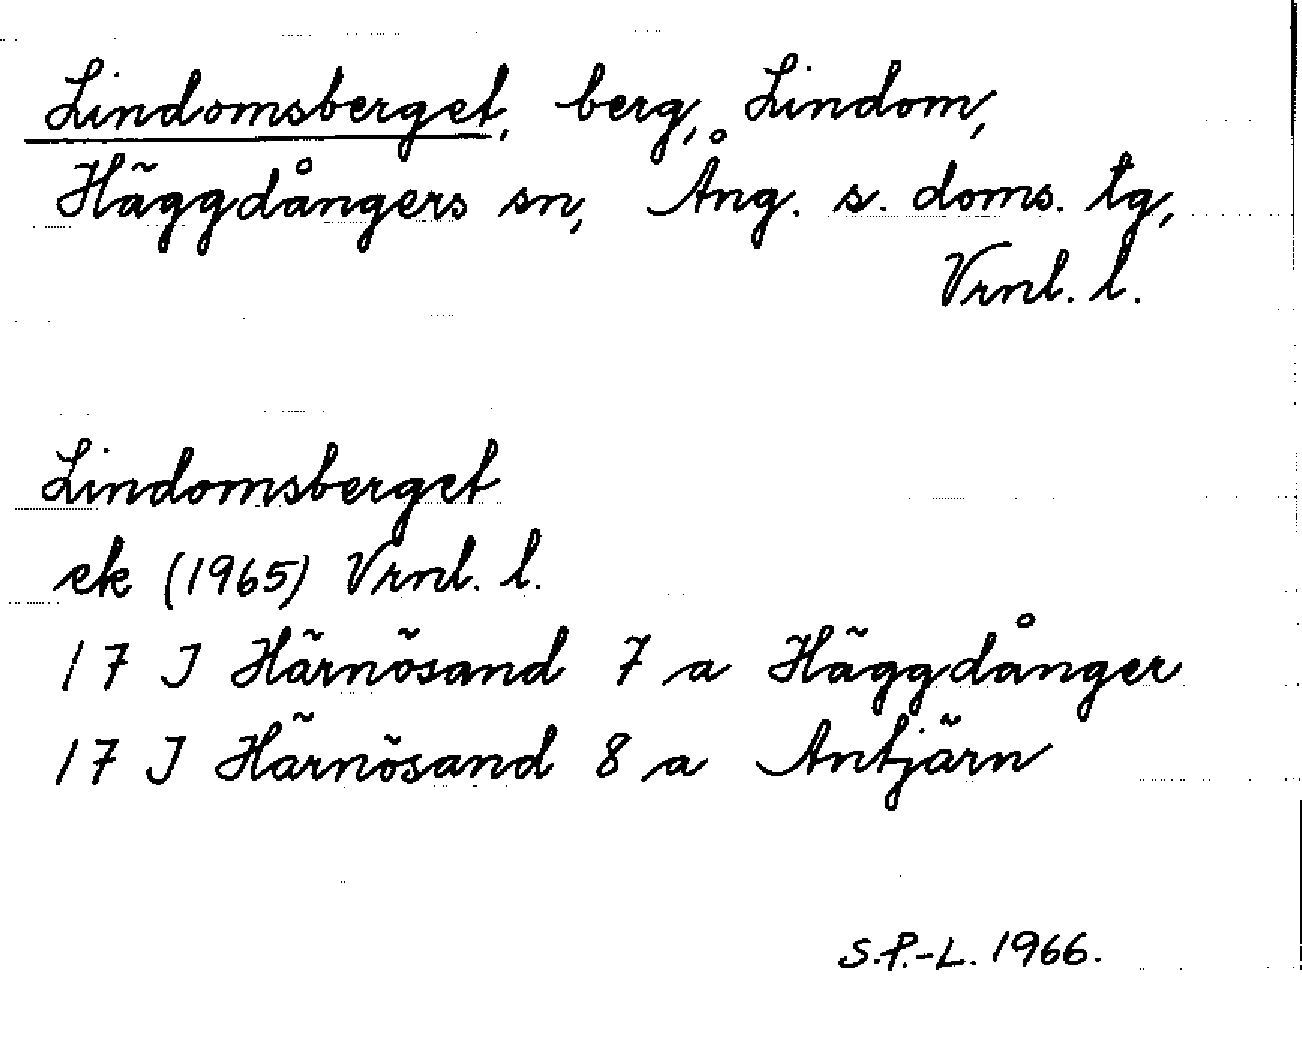 Lindomsberget, berg, Lindom,
Häggdångers sn, Ång. s. doms. tg,
Vrnl. l.
Lindomsberget
ek (1965) Vrnl. l.
17 J Härnösand 7 a Häggdånger
17 J Härnösand 8 a Antjärn
S.P.-L. 1966.